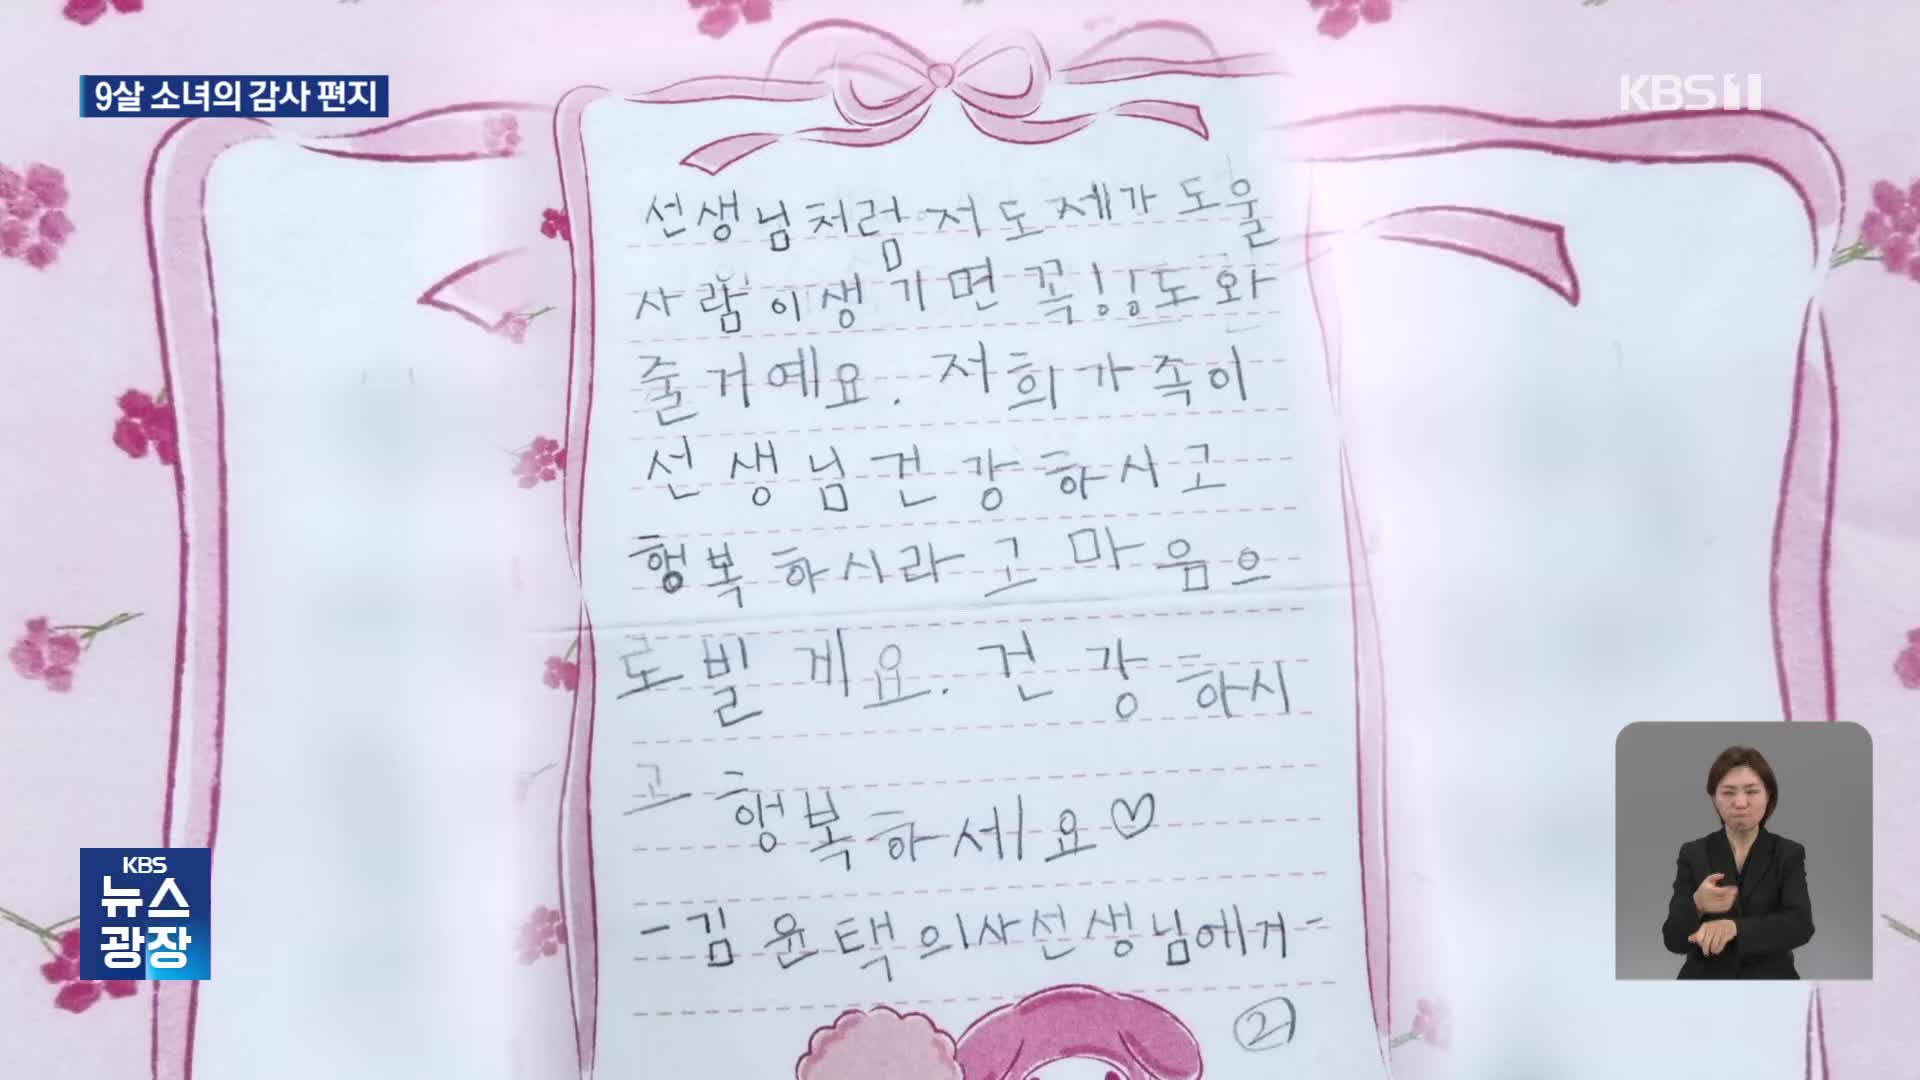 9살 소녀의 감사 편지
KBS 1
선생님처럼 저도 제가 도울
사람이 생기면 꼭!! 도와
줄거예요. 저희 가족이
선생님 건강하시고
행복하시라고 마음으
로 빌게요. 건강하시
고 행복하세요♡
-김윤택 의사선생님에게-
2
KBS
뉴스
광장